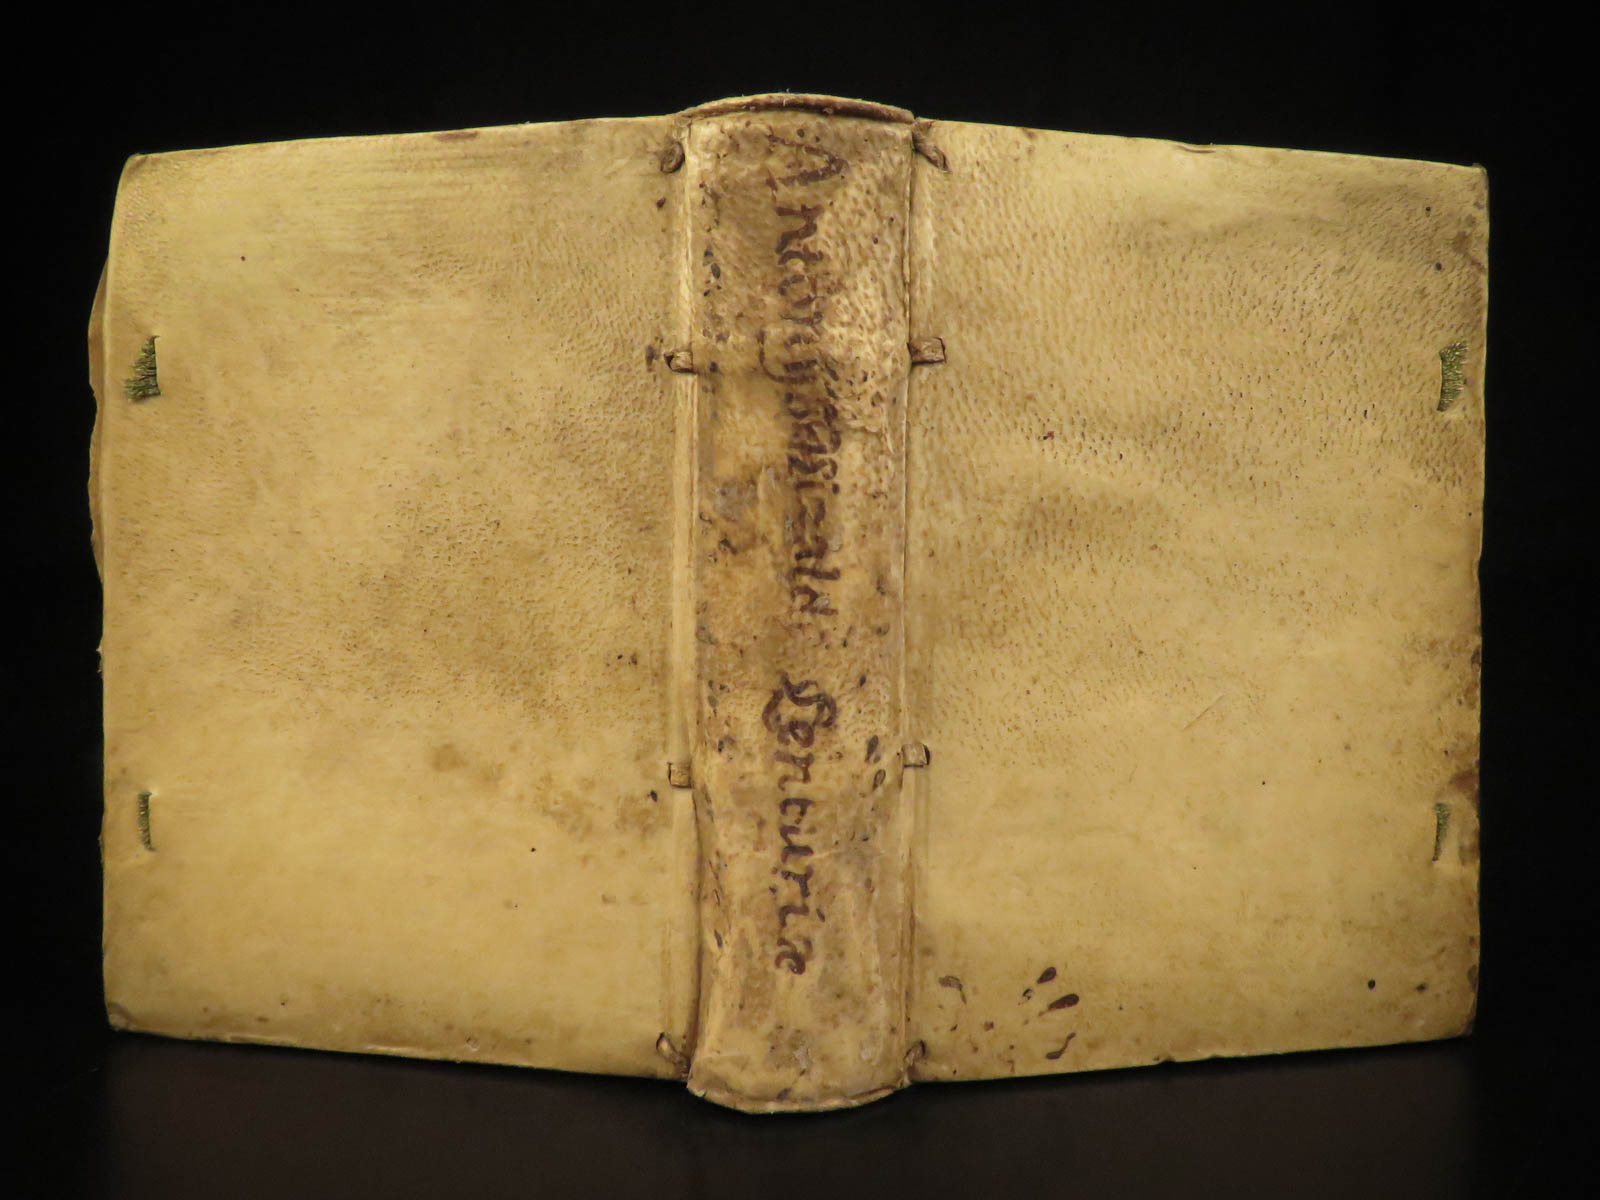 Antonij Mizaldi Centuriæ